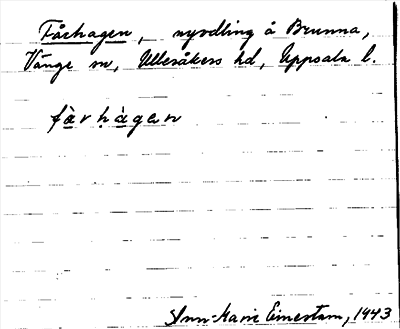 Fårhagen, nyodling å Brunna,
Vänge sn, Ulleråkers hd, Uppsala l.
fà̱rḥà̱gen
Ann-Marie Ernestam, 1943